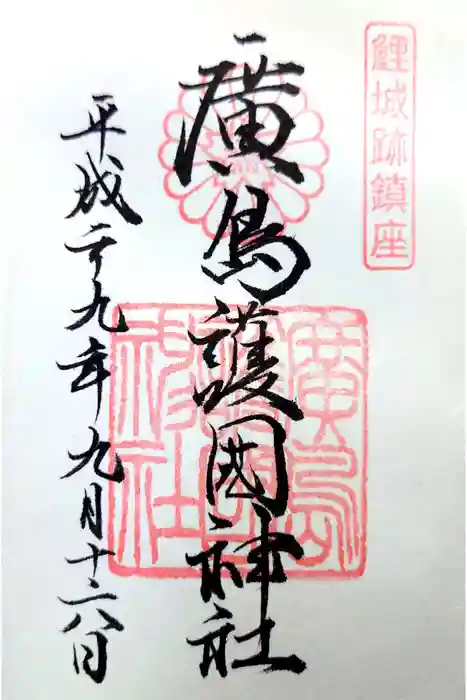 鯉城跡鎮座
廣島護國神社
平成二十九年九月十六日
廣島
護國
神社